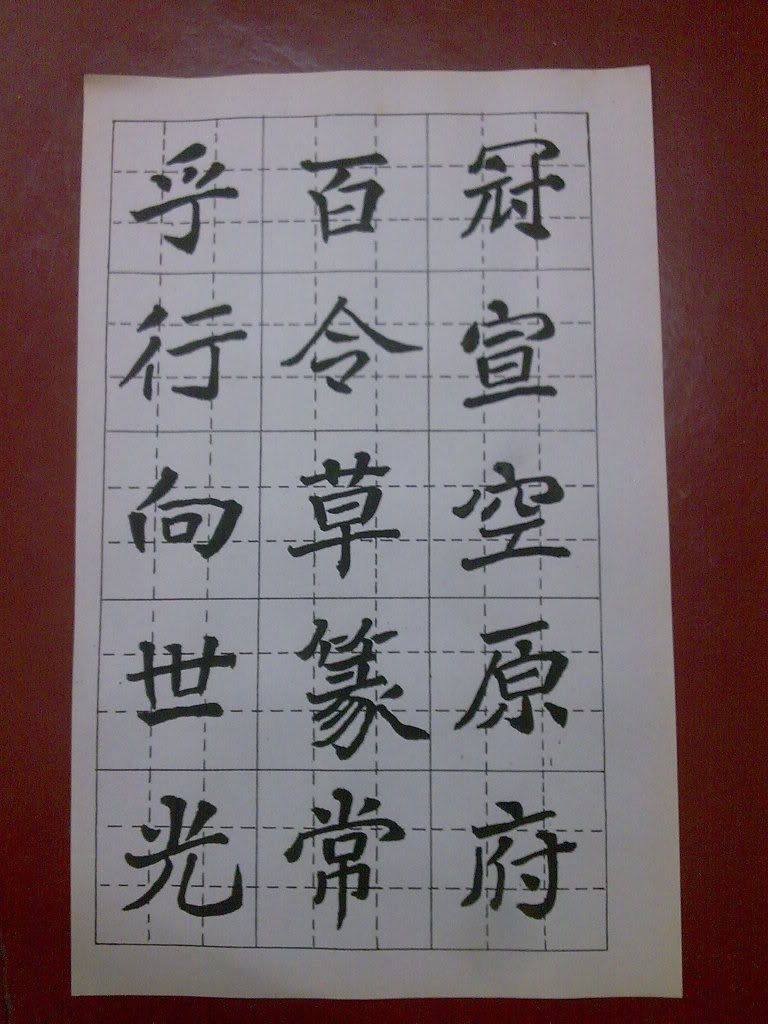 冠宣空原府
百令草篆常
乎行向世光